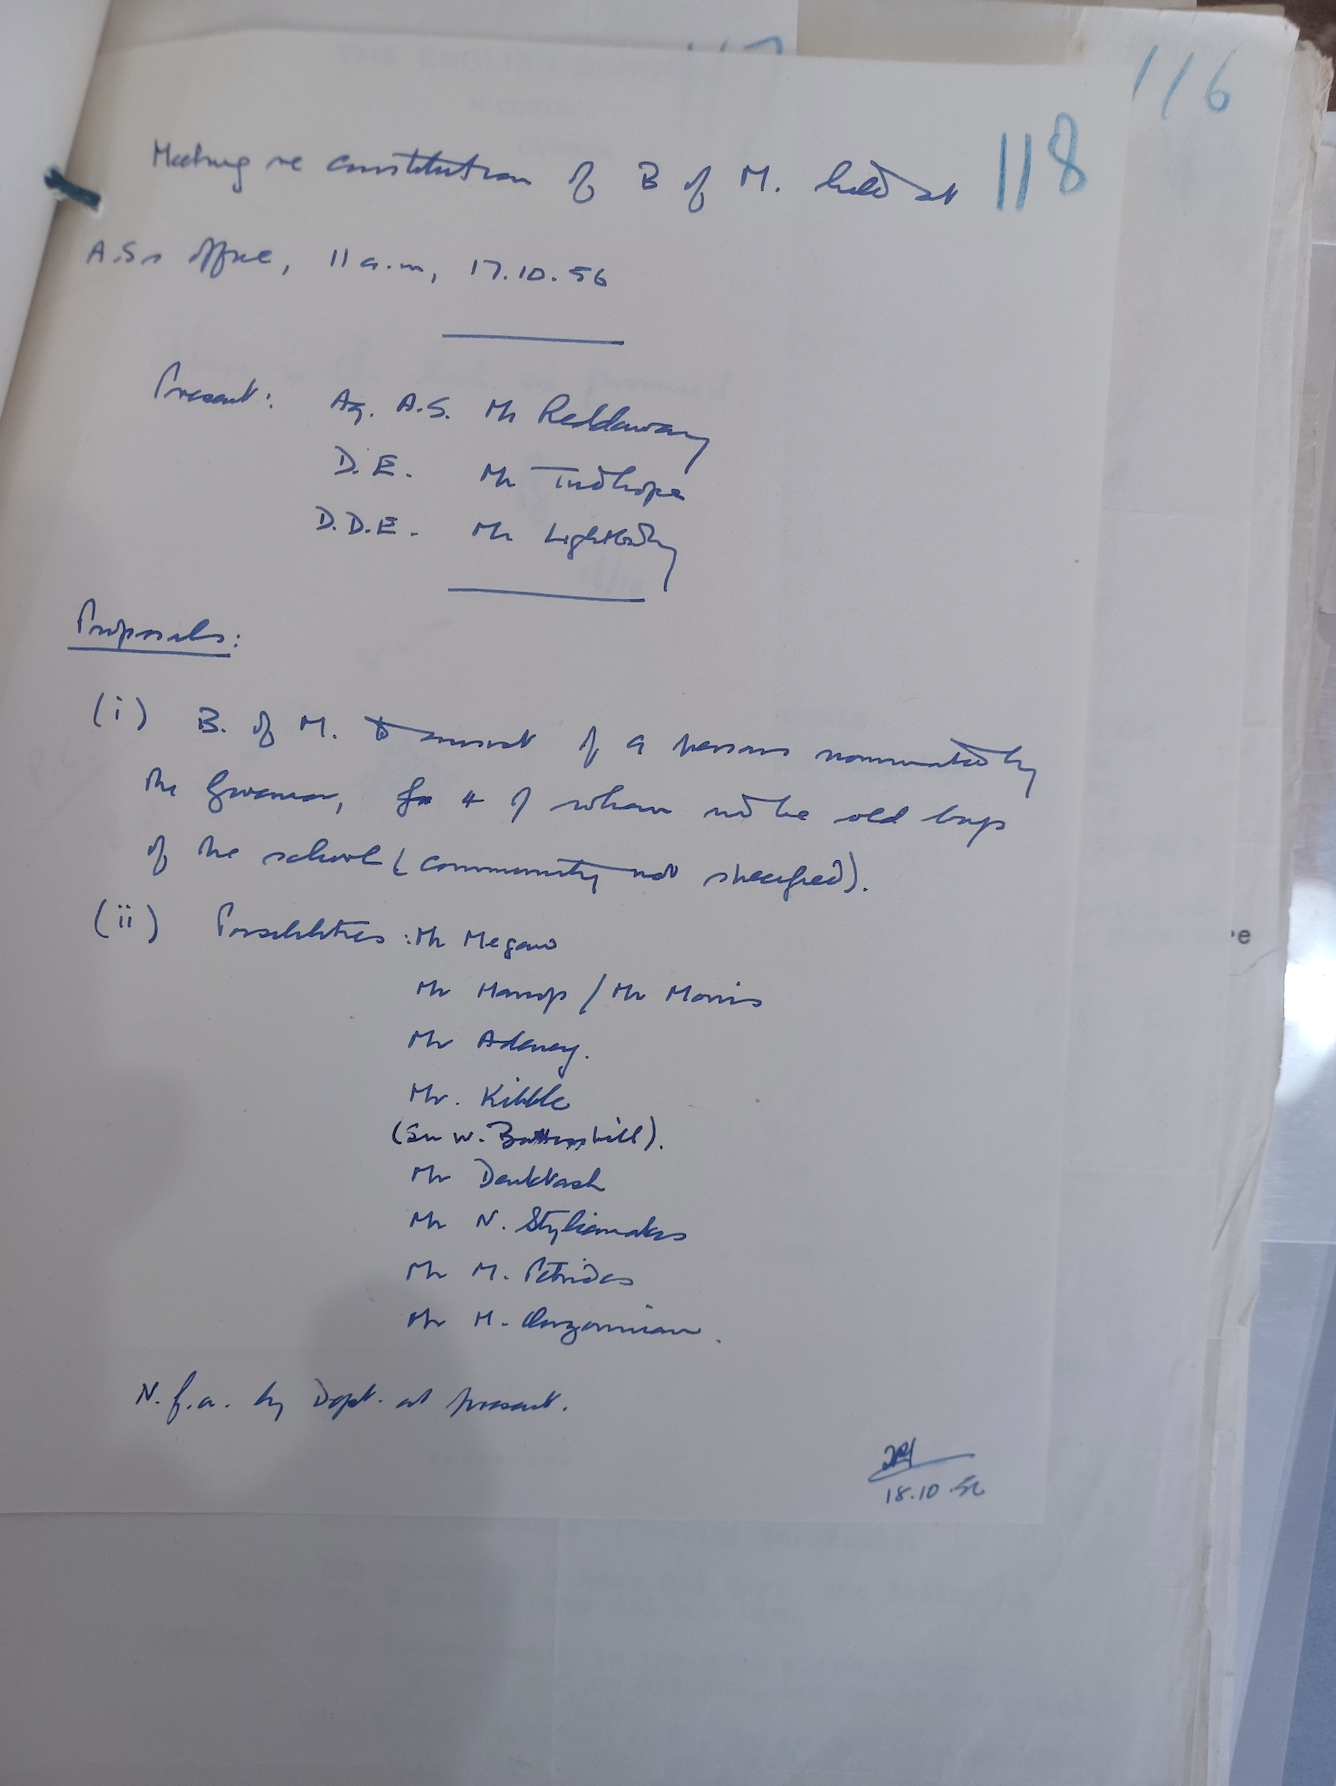 116
118
Meeting re constitution of B of M. held at
A.S's office, 11 a.m, 17.10.56
Present: Ag. A.S. Mr Reddaway
D.E. Mr Tudhope
D.D.E. Mr Lightbody
Proposals:
(i) B. of M. to consist of 9 persons nominated by
the Governor, 4 of whom will be old boys
of the school (community not specified).
(ii) Possibilities: Mr Megaw
Mr Harrop / Mr Morris
Mr Adeney.
Mr. Kibble
(Sir W. Battershill).
Mr Denktash
Mr N. Stylianakis
Mr M. Petrides
Mr H.
N.f.a. by Dept. at present.
18.10.56